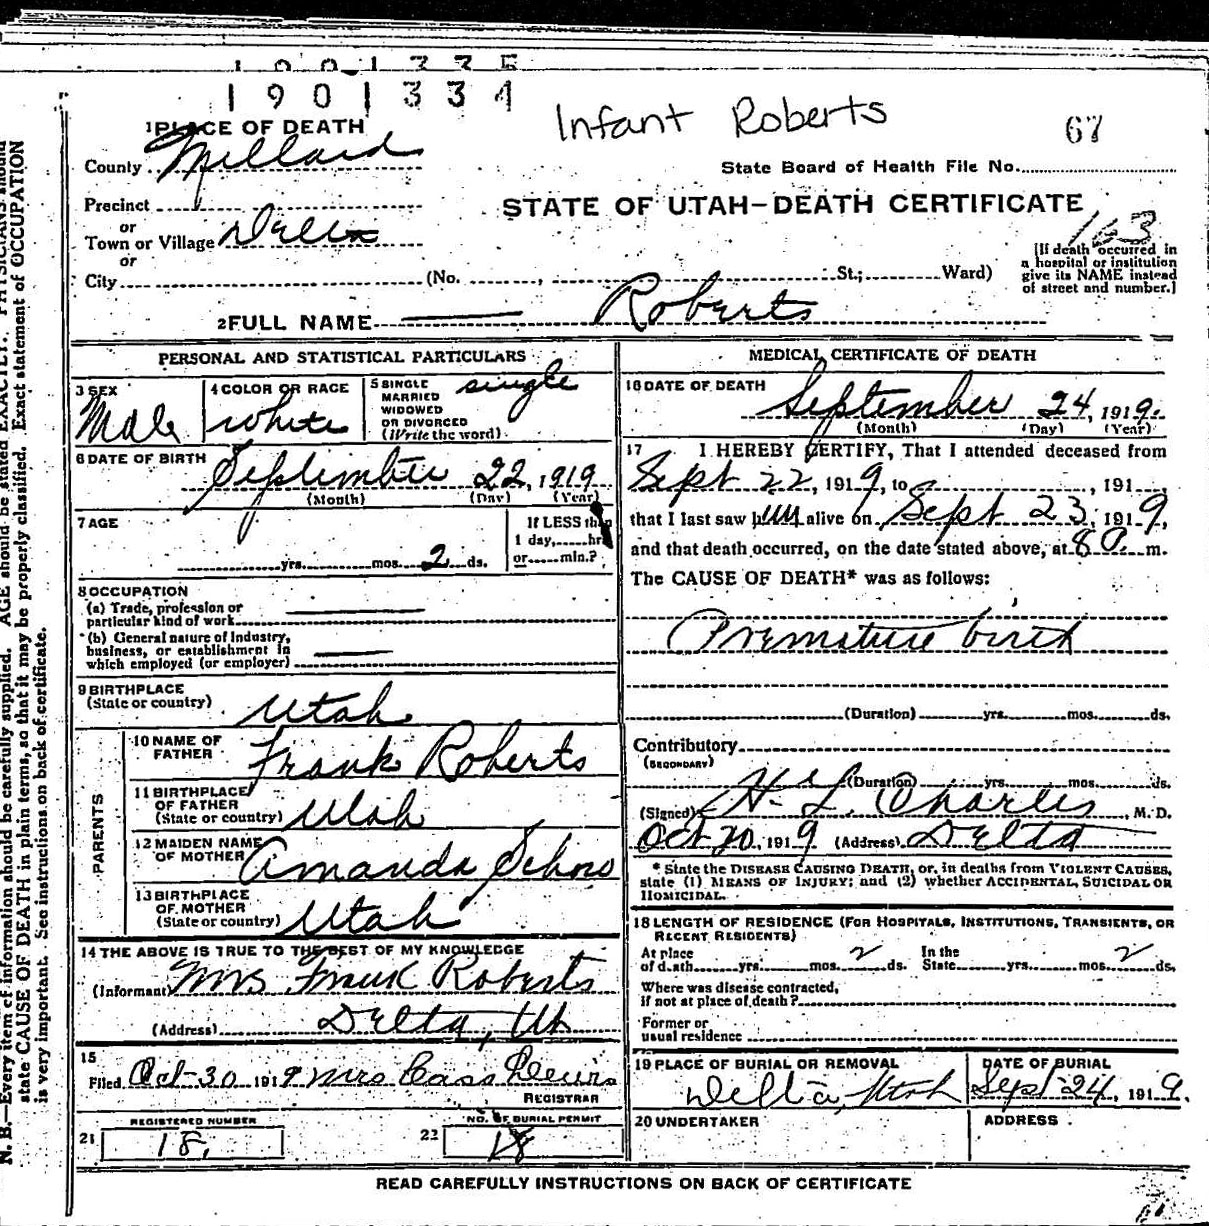 1901334
Infant Roberts
67
1 PLACE OF DEATH
County Millard
State Board of Health File No.
Precinct
or
STATE OF UTAH—DEATH CERTIFICATE
163
Town or Village Delta
or
City (No. , St.; Ward)
[If death occurred in
a hospital or institution
give its NAME instead
of street and number.]
2 FULL NAME Roberts
PERSONAL AND STATISTICAL PARTICULARS
3 SEX
Male
4 COLOR OR RACE
White
5 SINGLE
MARRIED
WIDOWED
OR DIVORCED
(Write the word)
single
6 DATE OF BIRTH
September 22, 1919
(Month) (Day) (Year)
7 AGE
yrs. mos. 2 ds.
If LESS than
1 day, hrs
or min.?
8 OCCUPATION
(a) Trade, profession or
particular kind of work
(b) General nature of Industry,
business, or establishment in
which employed (or employer)
9 BIRTHPLACE
(State or country)
Utah
PARENTS
10 NAME OF
FATHER
Frank Roberts
11 BIRTHPLACE
OF FATHER
(State or country)
Utah
12 MAIDEN NAME
OF MOTHER
Amanda
13 BIRTHPLACE
OF MOTHER
(State or country)
Utah
14 THE ABOVE IS TRUE TO THE BEST OF MY KNOWLEDGE
(Informant) Mrs Frank Roberts
(Address) Delta, Ut
15
Filed Oct-30 1919 Mrs Cass Lewis
REGISTRAR
REGISTERED NUMBER
21 18.
NO. OF BURIAL PERMIT
22 18
MEDICAL CERTIFICATE OF DEATH
16 DATE OF DEATH
September 24, 1919.
(Month) (Day) (Year)
17 I HEREBY CERTIFY, That I attended deceased from
Sept 22, 1919, to , 191
that I last saw him alive on Sept 23, 1919,
and that death occurred, on the date stated above, at 8 a m.
The CAUSE OF DEATH* was as follows:
Premature birth
(Duration) yrs. mos. ds.
Contributory
(SECONDARY)
(Duration) yrs. mos. ds.
(Signed) H. L. Charles, M. D.
Oct 20, 1919 (Address) Delta
* State the DISEASE CAUSING DEATH, or, in deaths from VIOLENT CAUSES,
state (1) MEANS OF INJURY; and (2) whether ACCIDENTAL, SUICIDAL OR
HOMICIDAL.
18 LENGTH OF RESIDENCE (FOR HOSPITALS, INSTITUTIONS, TRANSIENTS, OR
RECENT RESIDENTS)
At place
of death yrs. mos. 2 ds.
In the
State yrs. mos. 2 ds.
Where was disease contracted,
if not at place of death?
Former or
usual residence
19 PLACE OF BURIAL OR REMOVAL
Delta, Utah
DATE OF BURIAL
Sept 24, 1919.
20 UNDERTAKER
ADDRESS
READ CAREFULLY INSTRUCTIONS ON BACK OF CERTIFICATE
N. B.—Every item of information should be carefully supplied. AGE should be stated EXACTLY. PHYSICIANS should
state CAUSE OF DEATH in plain terms, so that it may be properly classified. Exact statement of OCCUPATION
is very important. See instructions on back of certificate.